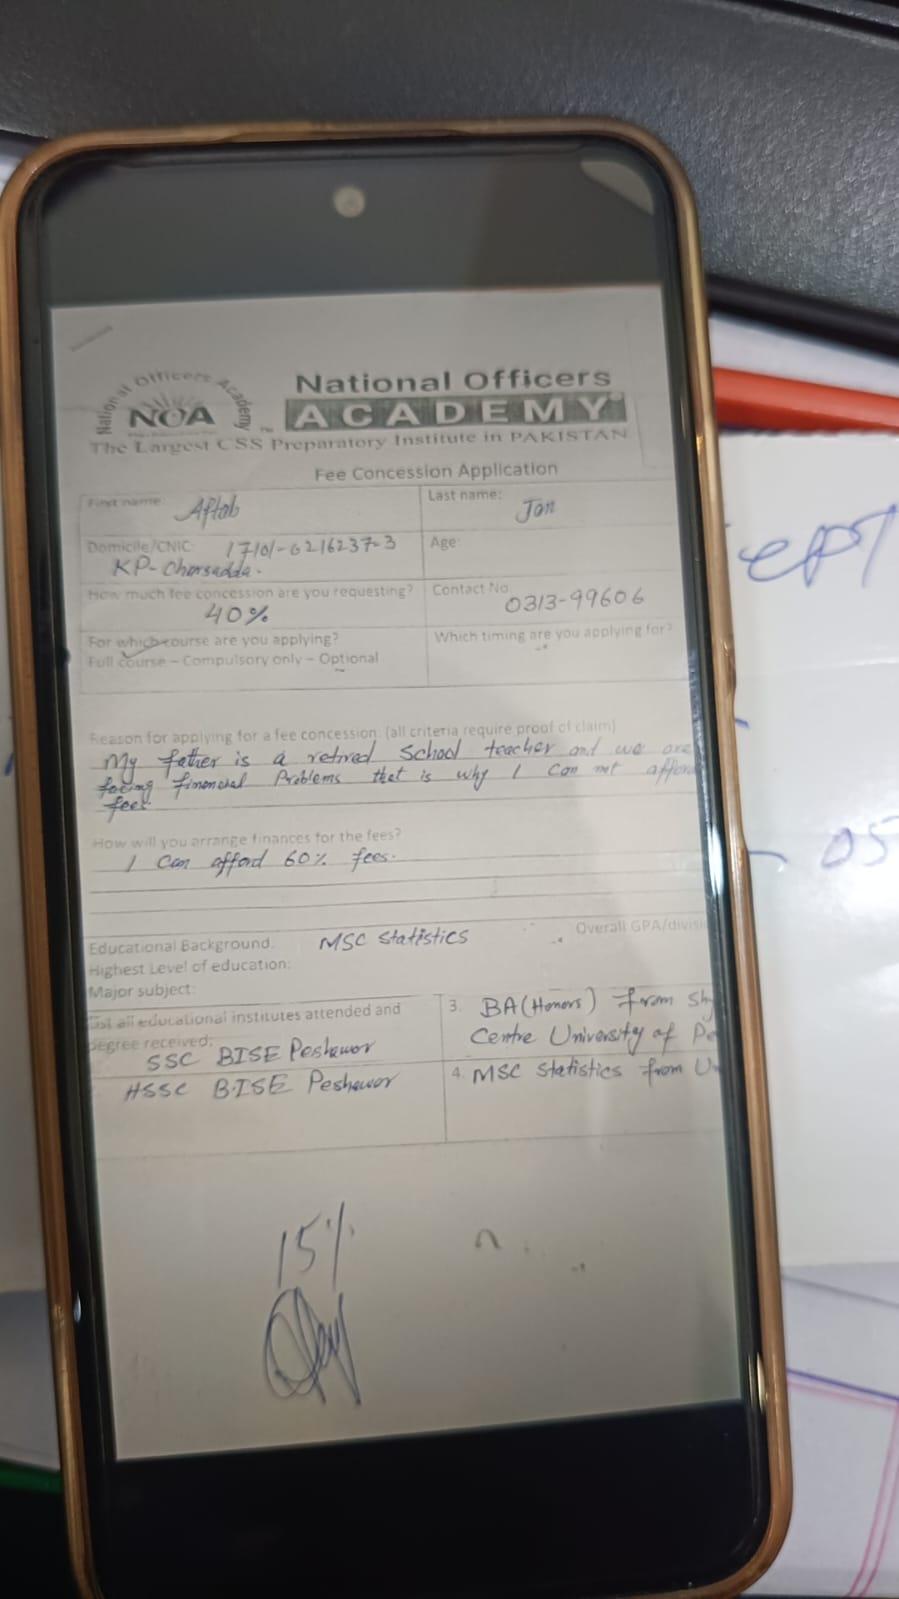 National Officers Academy
NOA
National Officers
ACADEMY
The Largest CSS Preparatory Institute in PAKISTAN
Fee Concession Application
First name: Aftab
Last name: Jan
Domicile/CNIC: 17101-6216237-3
KP-Charsadda.
Age:
How much fee concession are you requesting?
40%
Contact No.
0313-99606
For which course are you applying?
Full course – Compulsory only – Optional
Which timing are you applying for?
Reason for applying for a fee concession: (all criteria require proof of claim)
My father is a retired School teacher and we are
facing financial Problems that is why I can not affor
fees.
How will you arrange finances for the fees?
I can afford 60% fees.
Educational Background: MSC Statistics
Overall GPA/divisi
Highest Level of education:
Major subject:
List all educational institutes attended and
degree received:
SSC BISE Peshawar
HSSC B.ISE Peshawar
3. BA(Honors) from Sh
Centre University of Pe
4. MSC Statistics from U
15%
ept
05